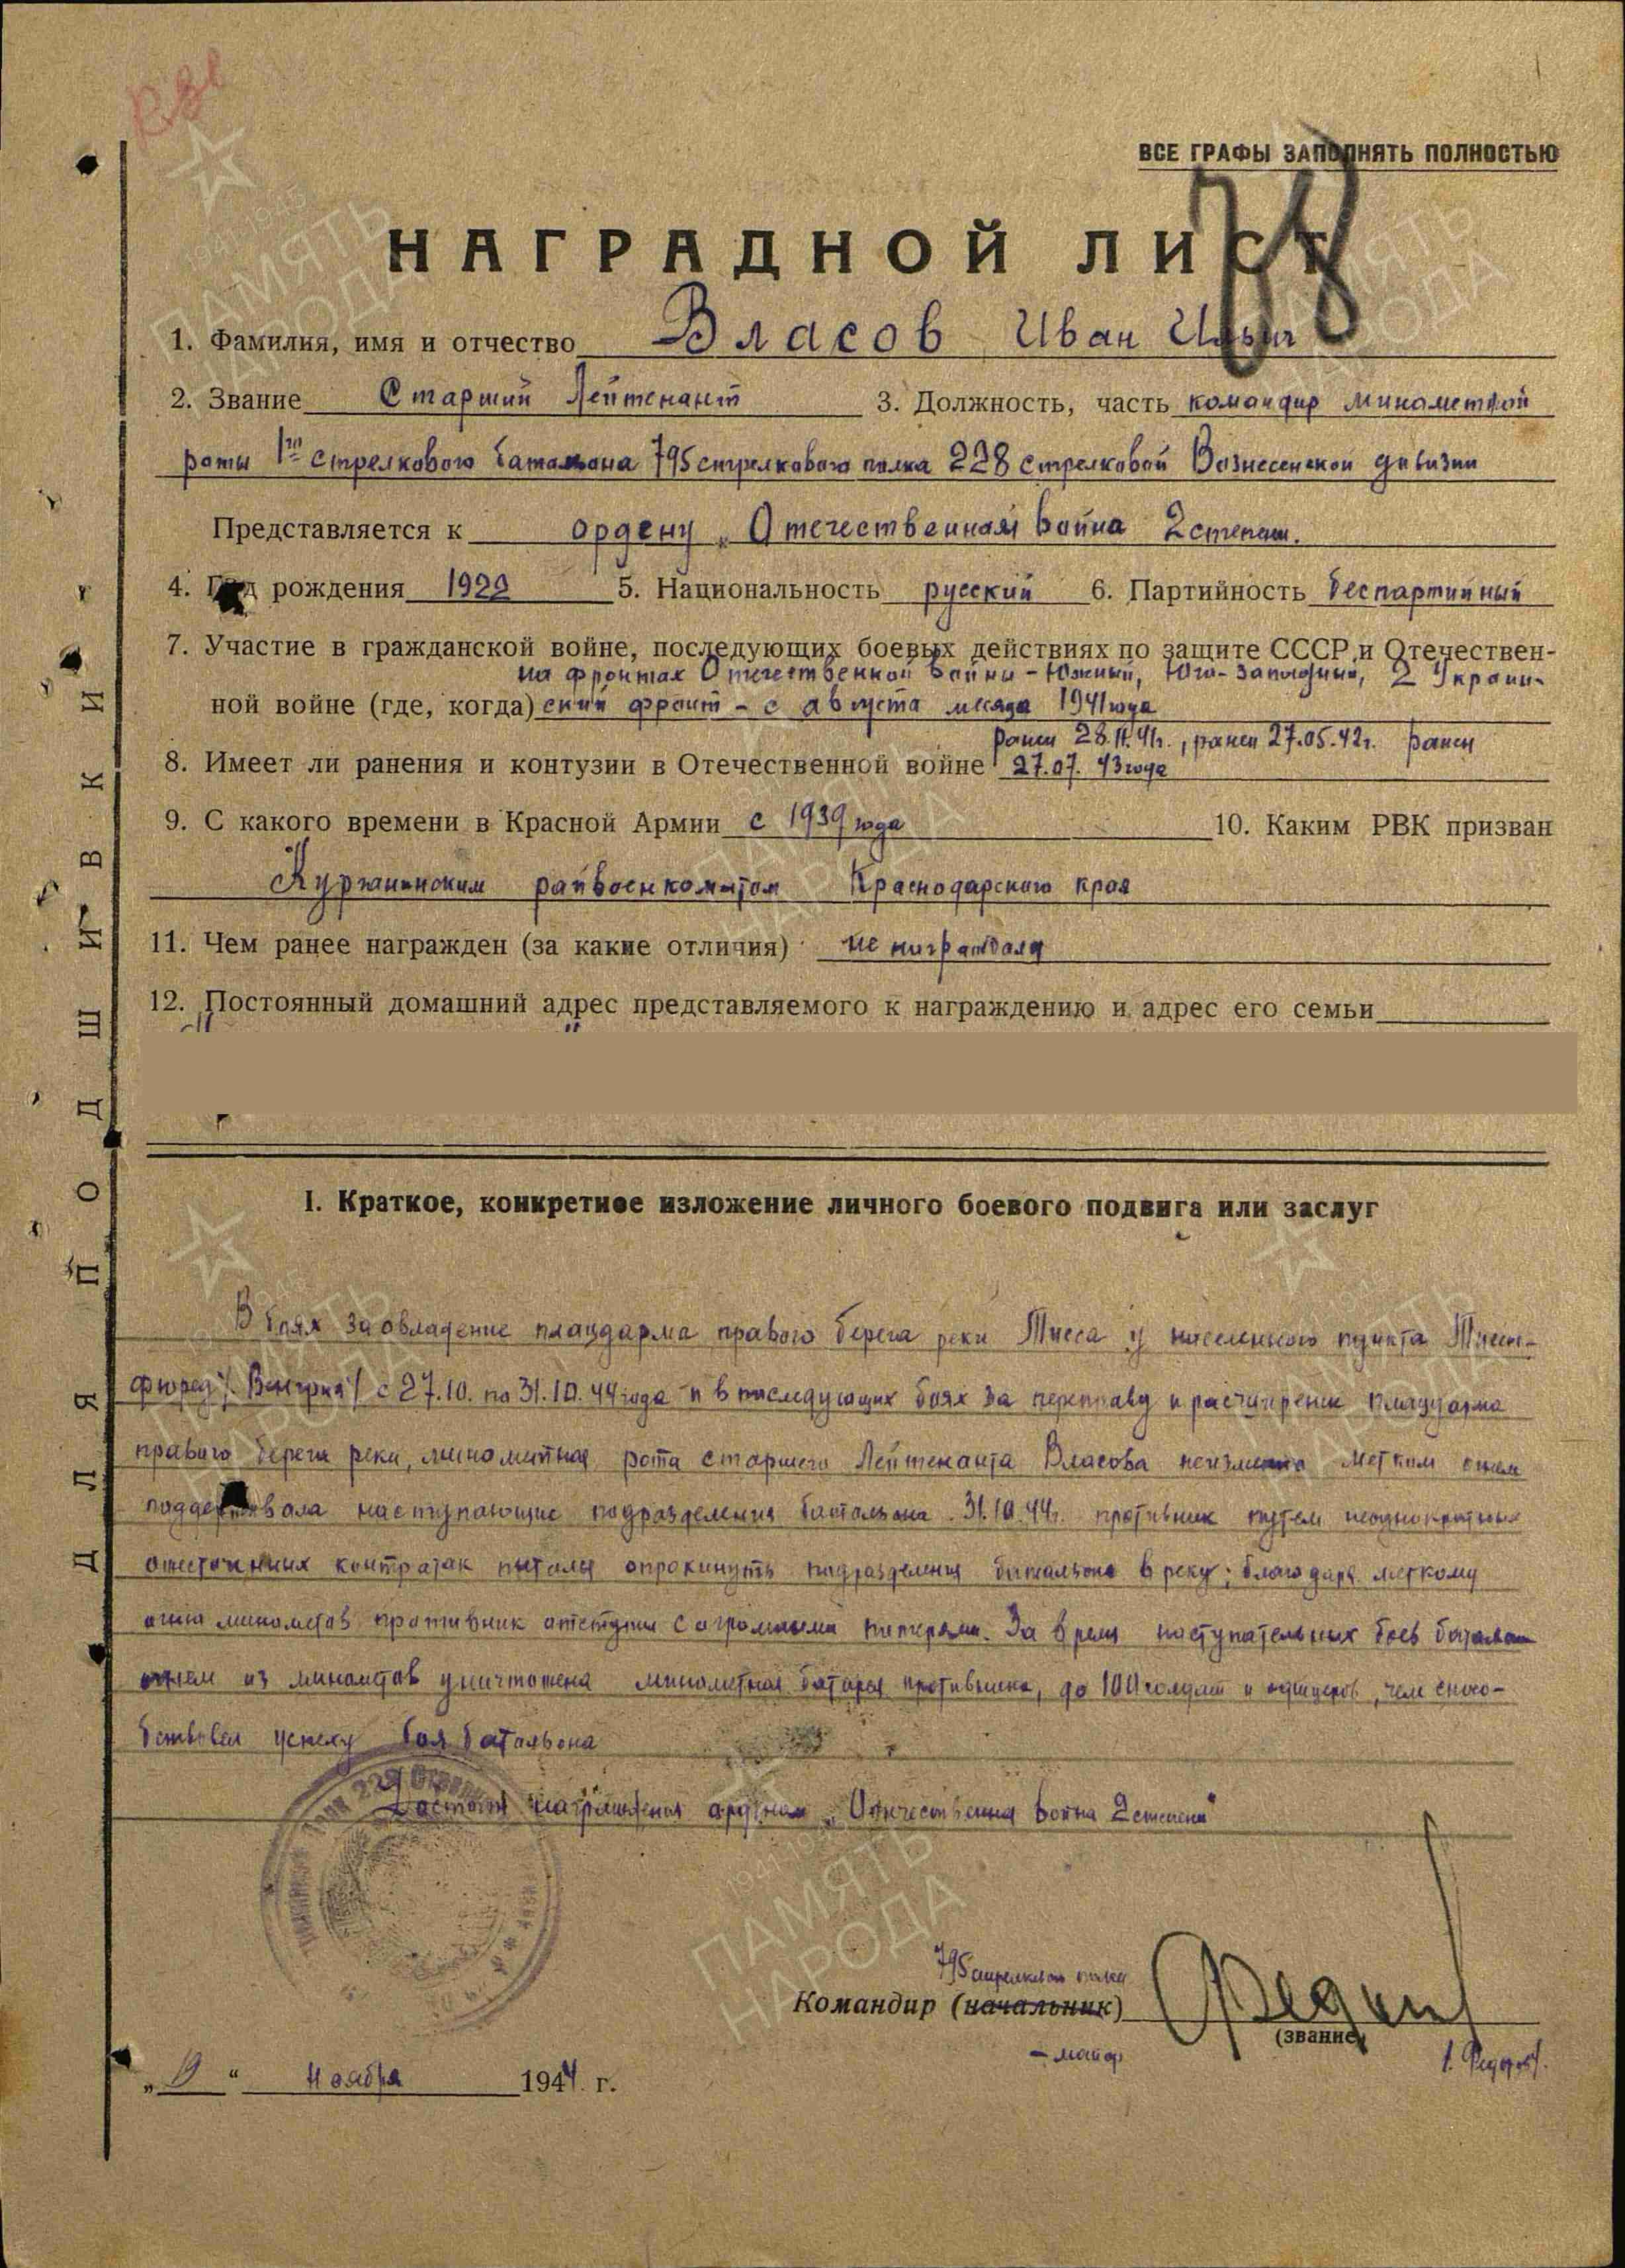 ВСЕ ГРАФЫ ЗАПОЛНЯТЬ ПОЛНОСТЬЮ
78
НАГРАДНОЙ ЛИСТ
1. Фамилия, имя и отчество Власов Иван Ильич
2. Звание Старший Лейтенант 3. Должность, часть командир минометной
роты 1го стрелкового батальона 795 стрелкового полка 228 стрелковой Вознесенской дивизии
Представляется к ордену „Отечественная война 2 степени.
4. Год рождения 1922 5. Национальность русский 6. Партийность беспартийный
7. Участие в гражданской войне, последующих боевых действиях по защите СССР и Отечествен-
на фронтах Отечественной Войны - Южный, Юго-Западный, 2 Украин-
ной войне (где, когда) ский фронт - с августа месяца 1941 года
ранен 28.11.41г., ранен 27.05.42г. ранен
8. Имеет ли ранения и контузии в Отечественной войне 27.07.43 года
9. С какого времени в Красной Армии с 1939 года 10. Каким РВК призван
Курганинским райвоенкоматом Краснодарского края
11. Чем ранее награжден (за какие отличия) не награждался
12. Постоянный домашний адрес представляемого к награждению и адрес его семьи
I. Краткое, конкретное изложение личного боевого подвига или заслуг
В боях за овладение плацдарма правого берега реки Тисса у населенного пункта Тисса-
фюред /Венгрия/ с 27.10. по 31.10.44 года и в последующих боях за переправу и расширение плацдарма
правого берега реки, минометная рота старшего Лейтенанта Власова неизменно метким огнем
поддерживала наступающие подразделения батальона. 31.10.44г. противник путем неоднократных
ожесточенных контратак пытался опрокинуть подразделения батальона в реку; благодаря меткому
огню минометов противник отступил с огромными потерями. За время наступательных боев батальона
огнем из минометов уничтожена минометная батарея противника, до 100 солдат и офицеров, чем спосо-
бствовал успеху боя батальона
Достоин награждения орденом „Отечественная война 2 степени"
795 стрелкового полка
Командир (начальник)
(звание)
- майор
/. Федоров/.
„19“ ноября 1944 г.
ДЛЯ ПОДШИВКИ
1941-1945
ПАМЯТЬ
НАРОДА